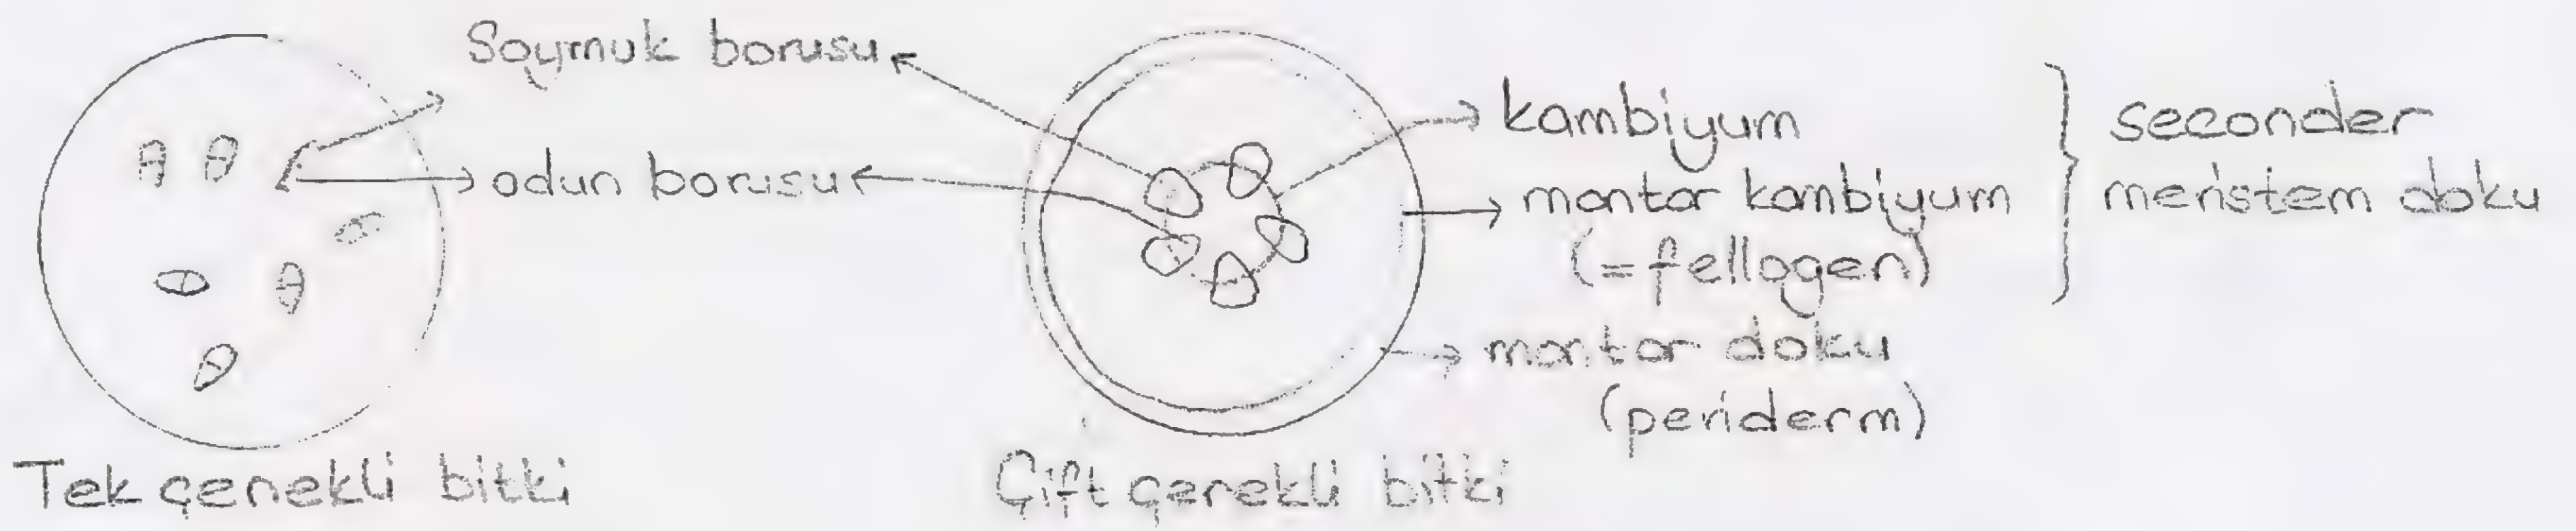 Soymuk borusu
odun borusu
kambiyum
mantar kambiyum
(=fellogen)
seconder
meristem doku
mantar doku
(periderm)
Tek çenekli bitki
Çift çenekli bitki